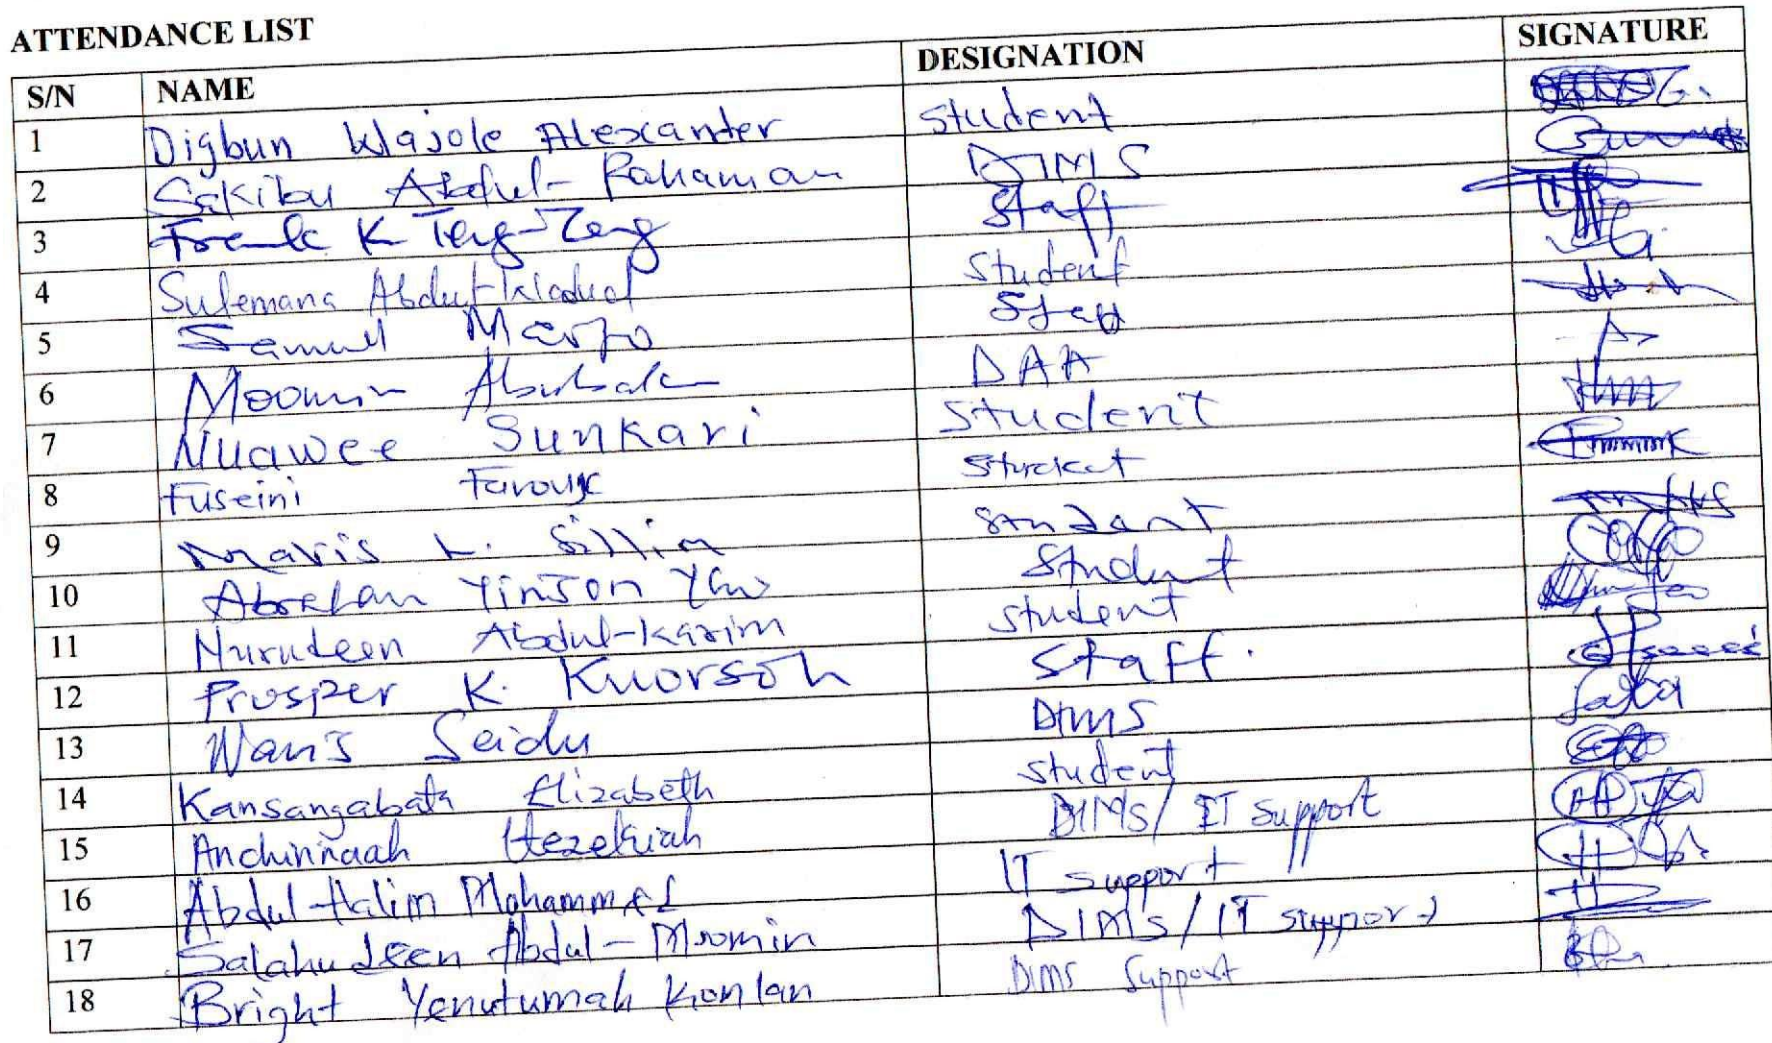 ATTENDANCE LIST
S/N NAME DESIGNATION SIGNATURE
1 Digbun Wajole Alexander Student
2 Sakibu Abdul-Rahaman DIMS
3 Frank K Teng-Zeng Staff
4 Sulemana Abdul-Wadud Student
5 Samuel Marfo Staff
6 Moomin Abubakar DAA
7 Nuawee Sunkari Student
8 Fuseini Farouk Student
9 Mavis L. Student
10 Abraham Yinson Student
11 Nurudeen Abdul-Karim Student
12 Prosper K. Kuorsoh Staff.
13 Wanis Seidu DIMS
14 Kansangabata Elizabeth student
15 Anchinnaah Hezekiah DIMS/ IT Support
16 Abdul-Halim Mohammed IT support
17 Salahudeen Abdul-Moomin DIMS/IT support
18 Bright Yenutumah Konlan DIMS Support